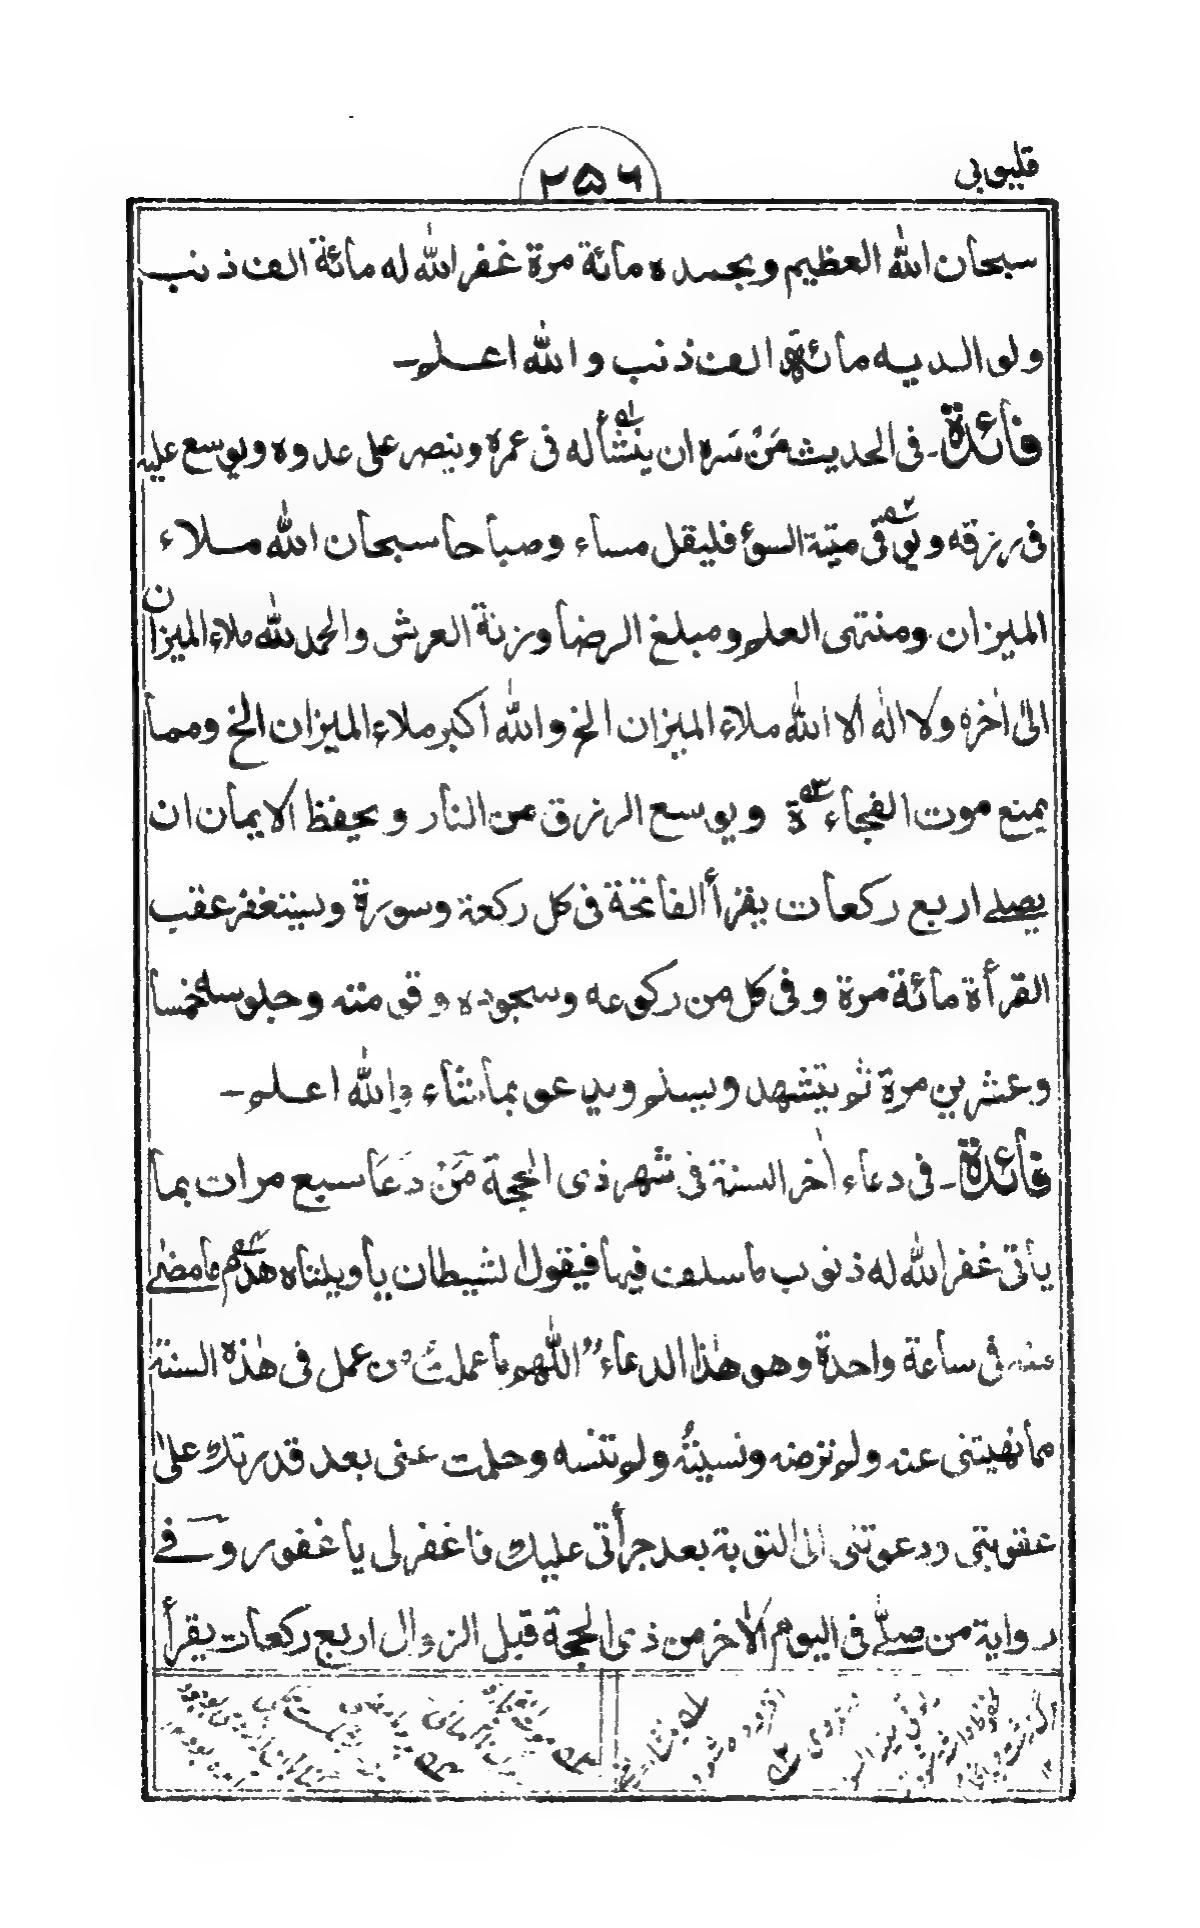 قليوبى
۲۵۶
سبحان الله العظيم وبحمده مائة مرة غفر الله له مائة الف ذنب
ولوالديه مائة الف ذنب والله اعلم۔
فائدة۔ فى الحديث مَنْ سَره ان ينشأله فى عمره وينصر على عدوه ويوسع عليه
فى رزقه ويوقى ميتة السوٴ فليقل مساء وصباحا سبحان الله ملاء
الميزان ومنتهى العلم ومبلغ الرضا وزنة العرش والحمد لله ملاء الميزان
الىٰ اٰخره ولا الٰه الا الله ملاء الميزان الخ والله اكبر ملاء الميزان الخ ومما
يمنع موت الفجاءة ويوسع الرزق من النار ويحفظ الايمان ان
يصلے اربع ركعات يقرأ الفاتحة فى كل ركعة وسورة ويستغفر عقب
القرأة مائة مرة وفى كل من ركوعه وسجوده وقومته وجلوسه خمسا
وعشرين مرة ثم يتشهد ويسلم ويدعو بماشاء والله اعلم۔
فائدة۔ فى دعاء اٰخر السنة فى شهر ذى الحجة مَنْ دَعَا سبع مرات بما
ياتى غفر الله له ذنوب ماسلف فيها فيقول الشيطان ياويلتاه هدم مامضے
منه فى ساعة واحدة وهو هٰذا الدعاء "اللّٰهم ما عملتُ من عمل فى هٰذه السنة
مما نهيتنى عنه ولم ترضه ونسيتُه ولم تنسه وحلمت عنى بعد قدرتك علىٰ
عقوبتى ودعوتنى الى التوبة بعد جرأتى عليك فاغفرلى ياغفور وفے
رواية من صلّے فى اليوم الاٰخر من ذى الحجة قبل الزوال اربع ركعات يقرأ